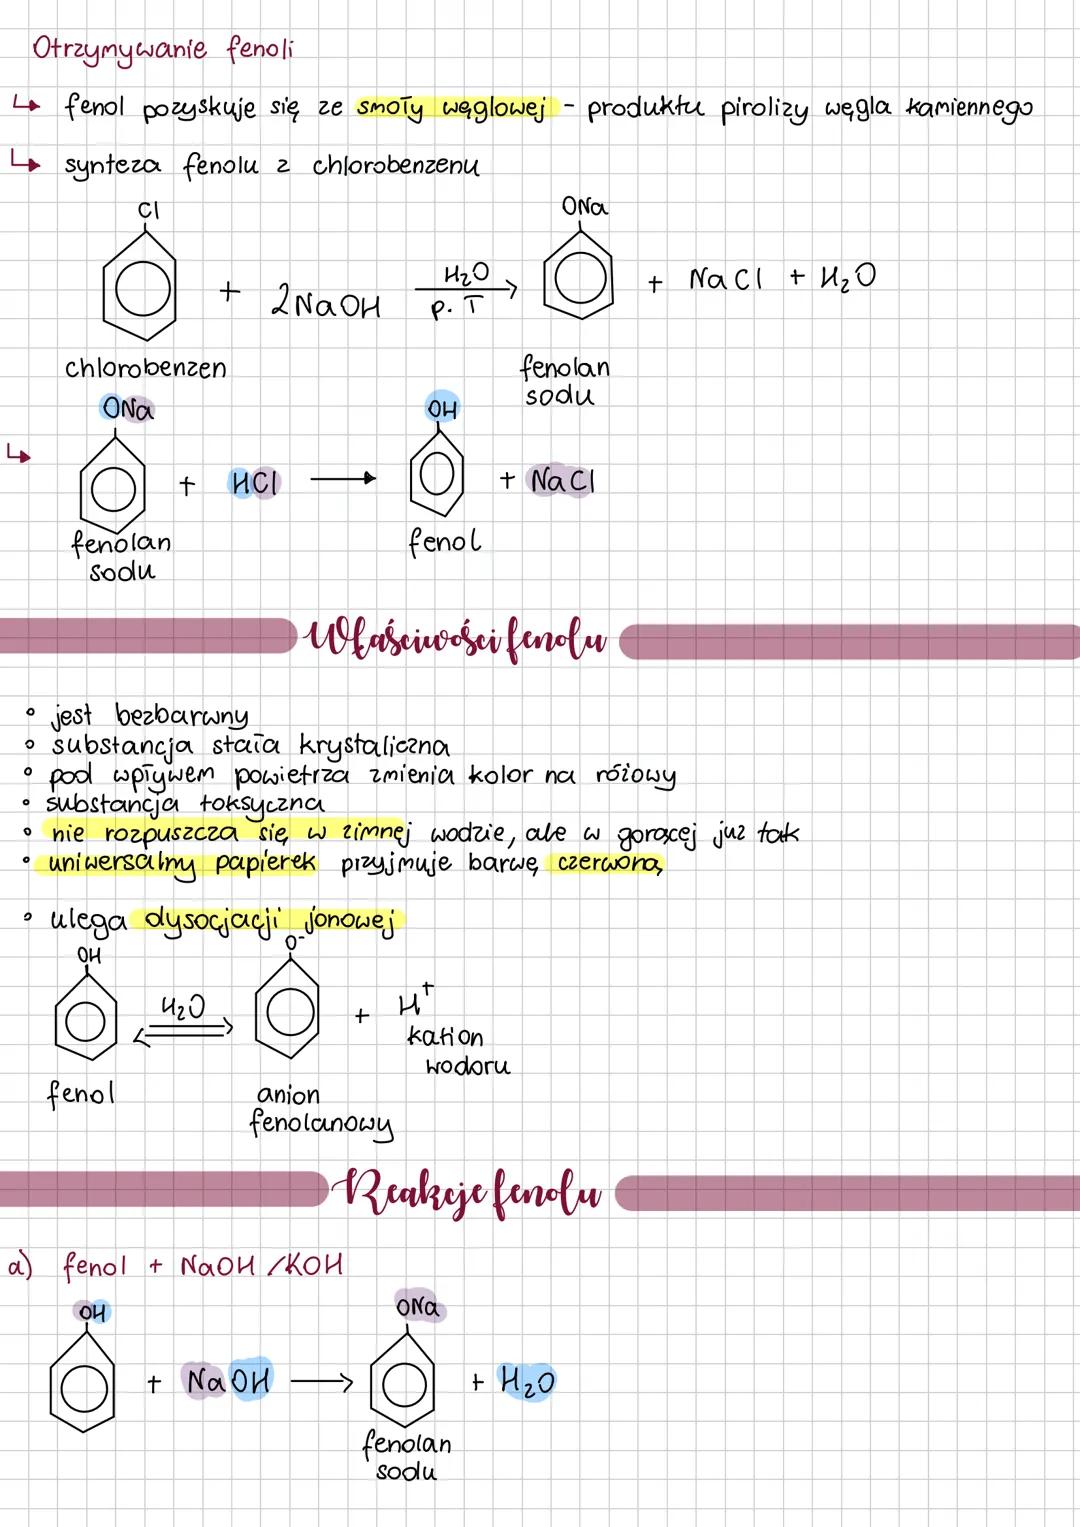 Otrzymywanie fenoli
↳ fenol pozyskuje się ze smoły węglowej - produktu pirolizy węgla kamiennego
↳ synteza fenolu z chlorobenzenu
Cl ONa
+ 2NaOH H₂O p. T → + NaCl + H₂O
chlorobenzen fenolan sodu
ONa OH
↳ + HCl → + NaCl
fenolan sodu fenol
Właściwości fenolu
• jest bezbarwny
• substancja stała krystaliczna
• pod wpływem powietrza zmienia kolor na różowy
• substancja toksyczna
• nie rozpuszcza się w zimnej wodzie, ale w gorącej już tak
• uniwersalny papierek przyjmuje barwę czerwoną
• ulega dysocjacji jonowej
OH O⁻
H₂O ⇌ + H⁺
kation wodoru
fenol anion fenolanowy
Reakcje fenolu
a) fenol + NaOH /KOH
OH ONa
+ NaOH → + H₂O
fenolan sodu